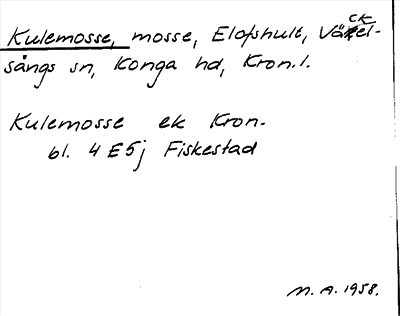 Kulemosse, mosse, Elofshult, Väckel-
sångs sn, Konga hd, Kron.l.
Kulemosse ek Kron.
bl. 4 E 5j Fiskestad
M. A. 1958.